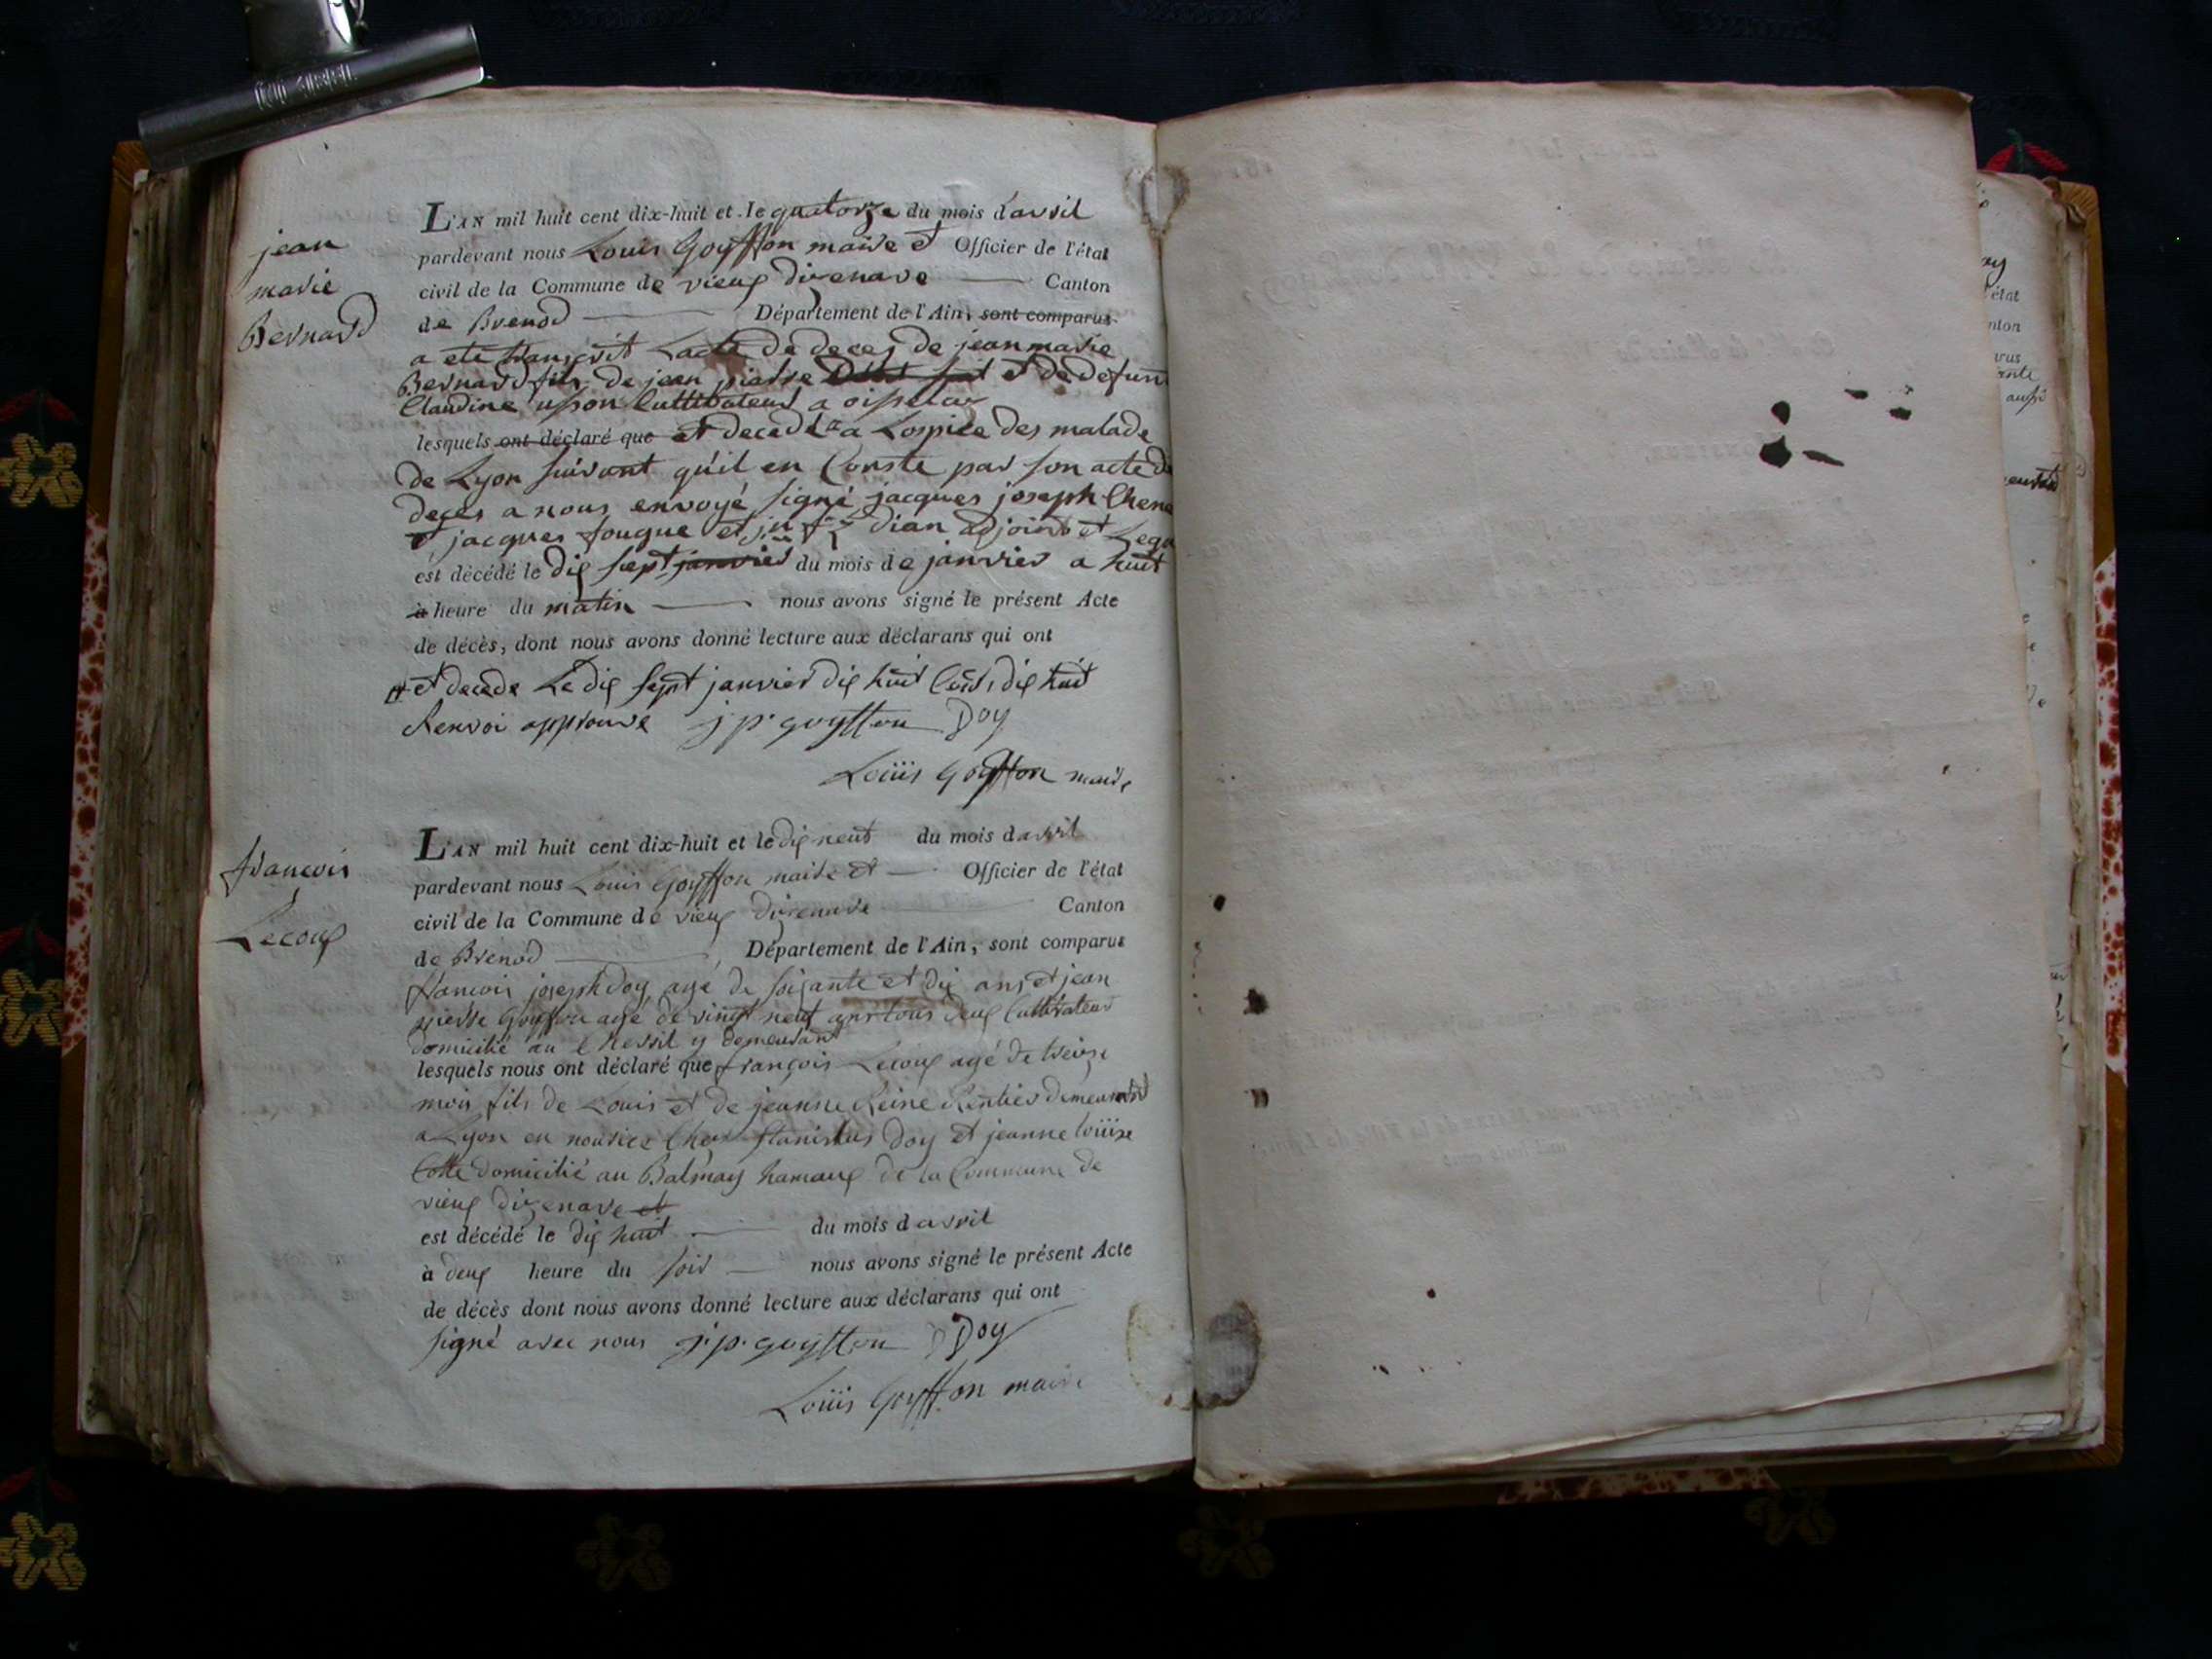 jean
marie
Bernard
L'AN mil huit cent dix-huit et le quatorze du mois d'avril
pardevant nous Louis Goyffon maire et Officier de l'état
civil de la Commune de vieux dizenave Canton
de Brenod Département de l'Ain, sont comparus
a ete transcrit Lacte de deces de jean marie
Bernard fils de jean pierre et de defunt
Claudine Cultivateur a
lesquels ont déclaré que et decedé a Lospice des malade
de Lyon suivant qu'il en Conste par son acte de
deces a nous envoyé signé jacques joseph
et jacques fougue et dian adjoint et
est décédé le dix sept janvier du mois de janvier a huit
à heure du matin nous avons signé le présent Acte
de décès, dont nous avons donné lecture aux déclarans qui ont
et decede Le dix sept janvier dix huit Cent dix huit
Renvoi approuve j p goyffon Doy
Loüis Goyffon maire
francois
Lecoux
L'AN mil huit cent dix-huit et le dix neuf du mois d avril
pardevant nous Louis Goyffon maire et Officier de l'état
civil de la Commune de vieux dizenave Canton
de Brenod Département de l'Ain, sont comparus
francois joseph Doy agé de soixante et dix ans et jean
pierre Goyffon agé de vingt neuf ans tous deux Cultivateur
domicilié au Chessil y demeurant
lesquels nous ont déclaré que françois Lecoux agé de treize
mois fils de Louis et de jeanne Reine demeurant
a Lyon en nourice Chez stanislas Doy et jeanne loüise
Cotte domicilié au Balmay hamaux de la Commune de
vieux dizenave et
est décédé le dix huit du mois d avril
à deux heure du soir nous avons signé le présent Acte
de décès dont nous avons donné lecture aux déclarans qui ont
signé avec nous j. p. goyffon Doy
Loüis Goyffon maire